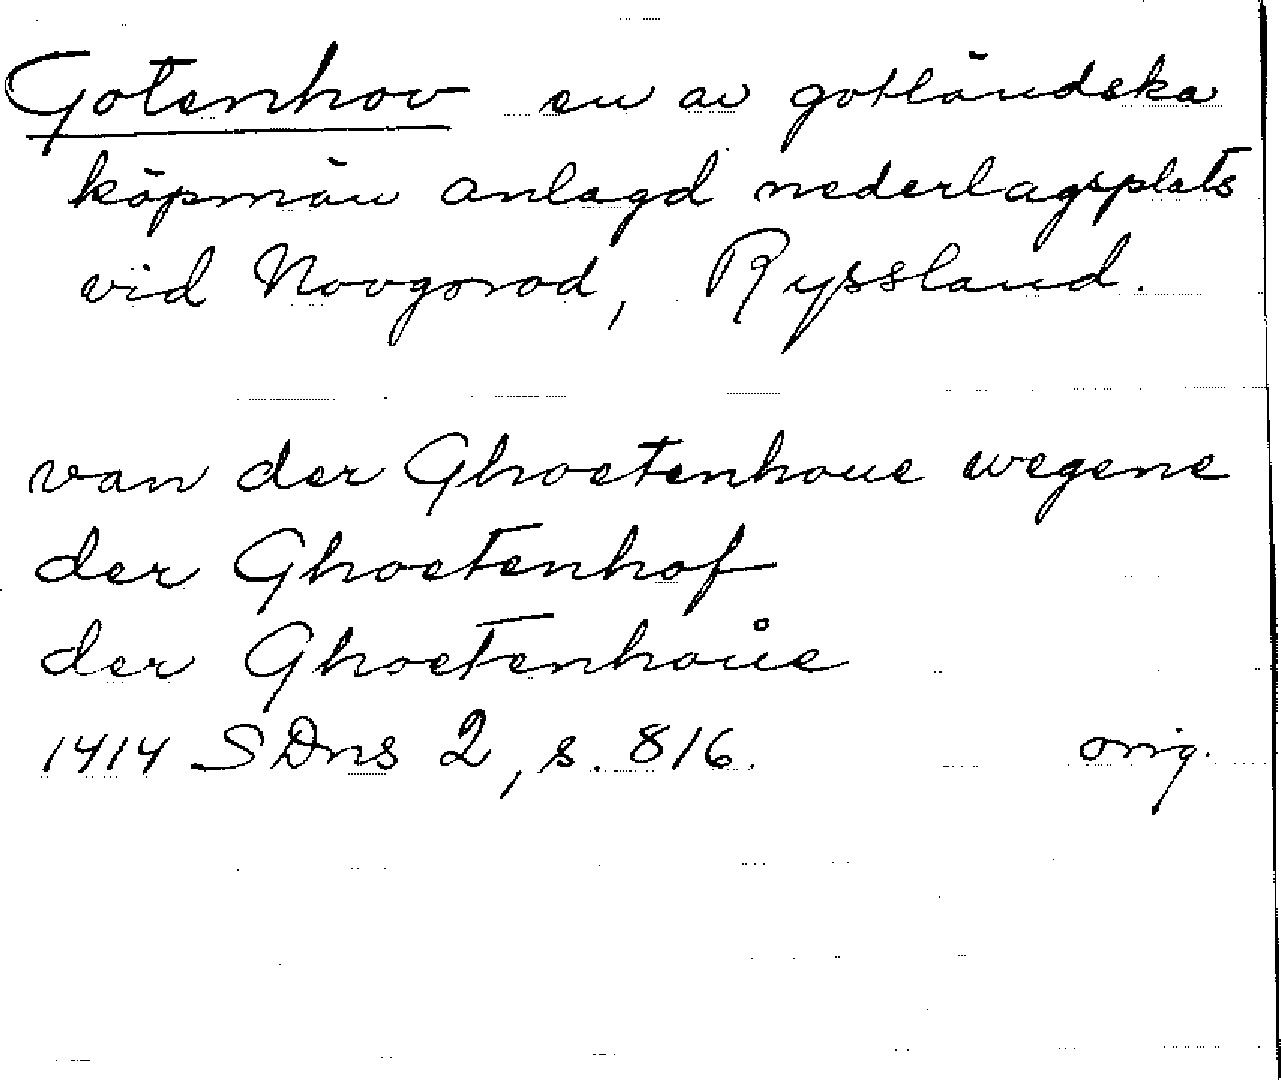 Gotenhov en av gotländska
köpmän anlagd nederlagsplats
vid Novgorod, Ryssland.
van der Ghoetenhoue wegene
der Ghoetenhof
der Ghoetenhoůe
1414 SDns 2, s. 816. orig.